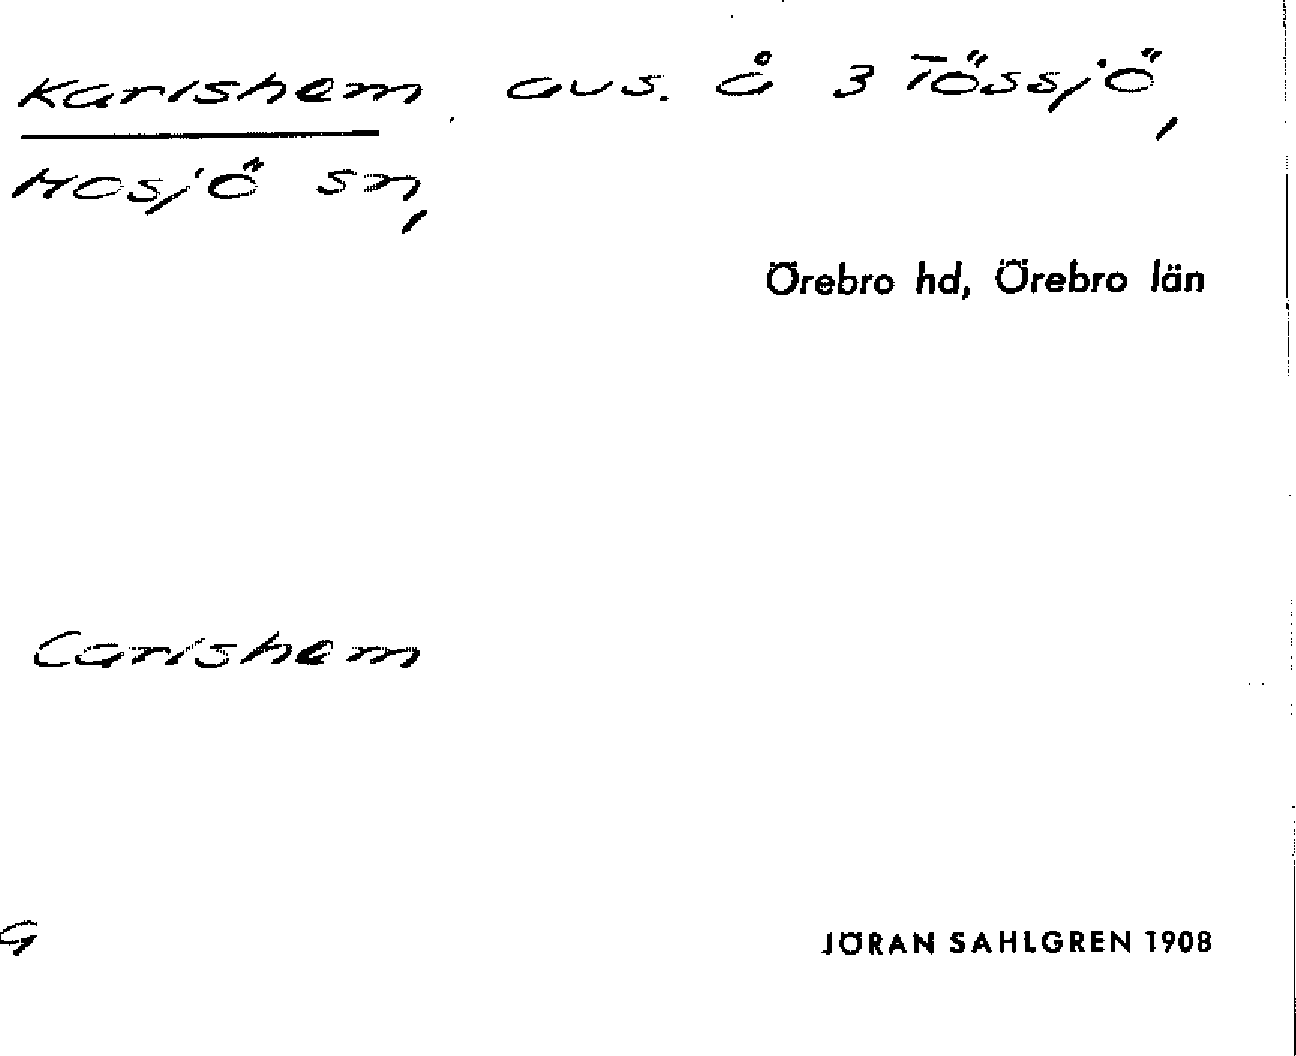 Karlshem, avs. å 3 Tössjö,
Mosjö sn,
Örebro hd, Örebro län
Carlshem
G
JÖRAN SAHLGREN 1908